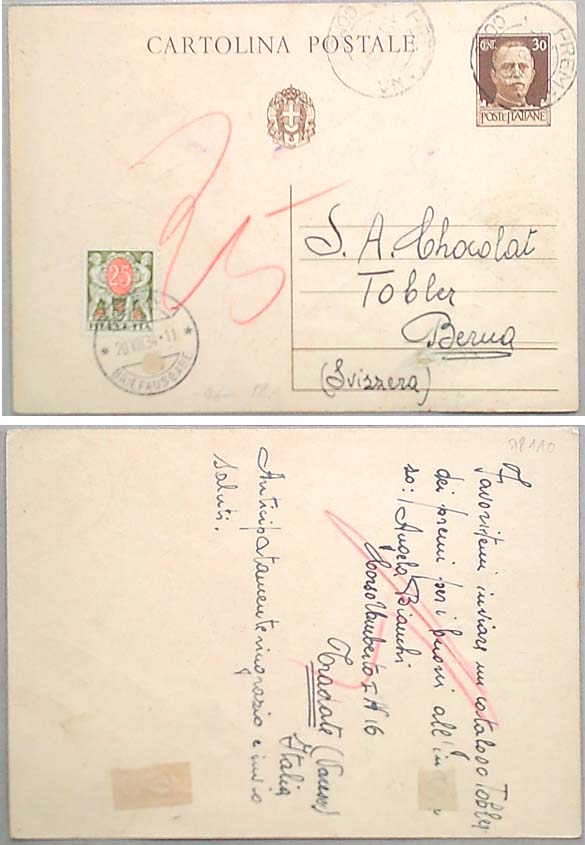 CARTOLINA POSTALE
CENT. 30
POSTE ITALIANE
25
S. A. Chocolat
Tobler
Berna
(Svizzera)
25
HELVETIA
20.VIII.34-11
BRIEFAUSGABE
78110
Favoritemi inviare un catalogo Tobler
dei premi per i buoni all'in
so: Angela Bianchi
Corso Umberto I N 16
Tradate (Varese)
Italia
Anticipatamente ringrazio e invio
saluti.